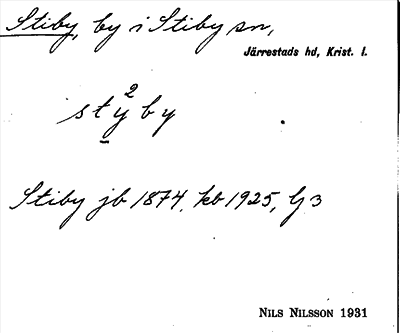 Stiby, by i Stiby sn,
Järrestads hd, Krist. l.
st²yby
Stiby jb 1874, kb 1925, G 3
NILS NILSSON 1931